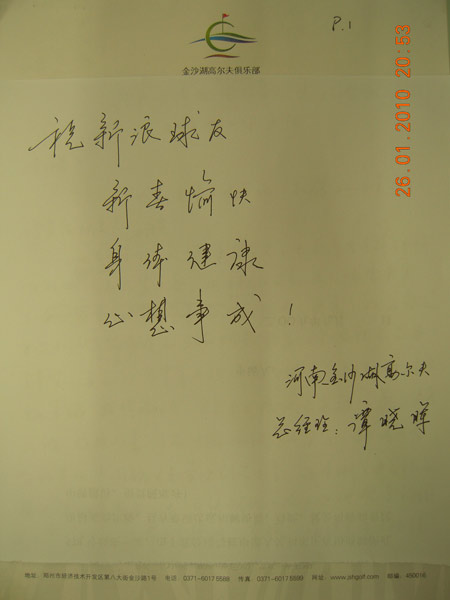 P.1
金沙湖高尔夫俱乐部
26.01.2010 20:53
祝新浪球友
新春愉快
身体健康
心想事成!
河南金沙湖高尔夫
总经理:谭晓晖
地址:郑州市经济技术开发区第八大街金沙路1号 电话:0371-60175588 传真:0371-60175599 网址:www.jshgolf.com 邮编:450016